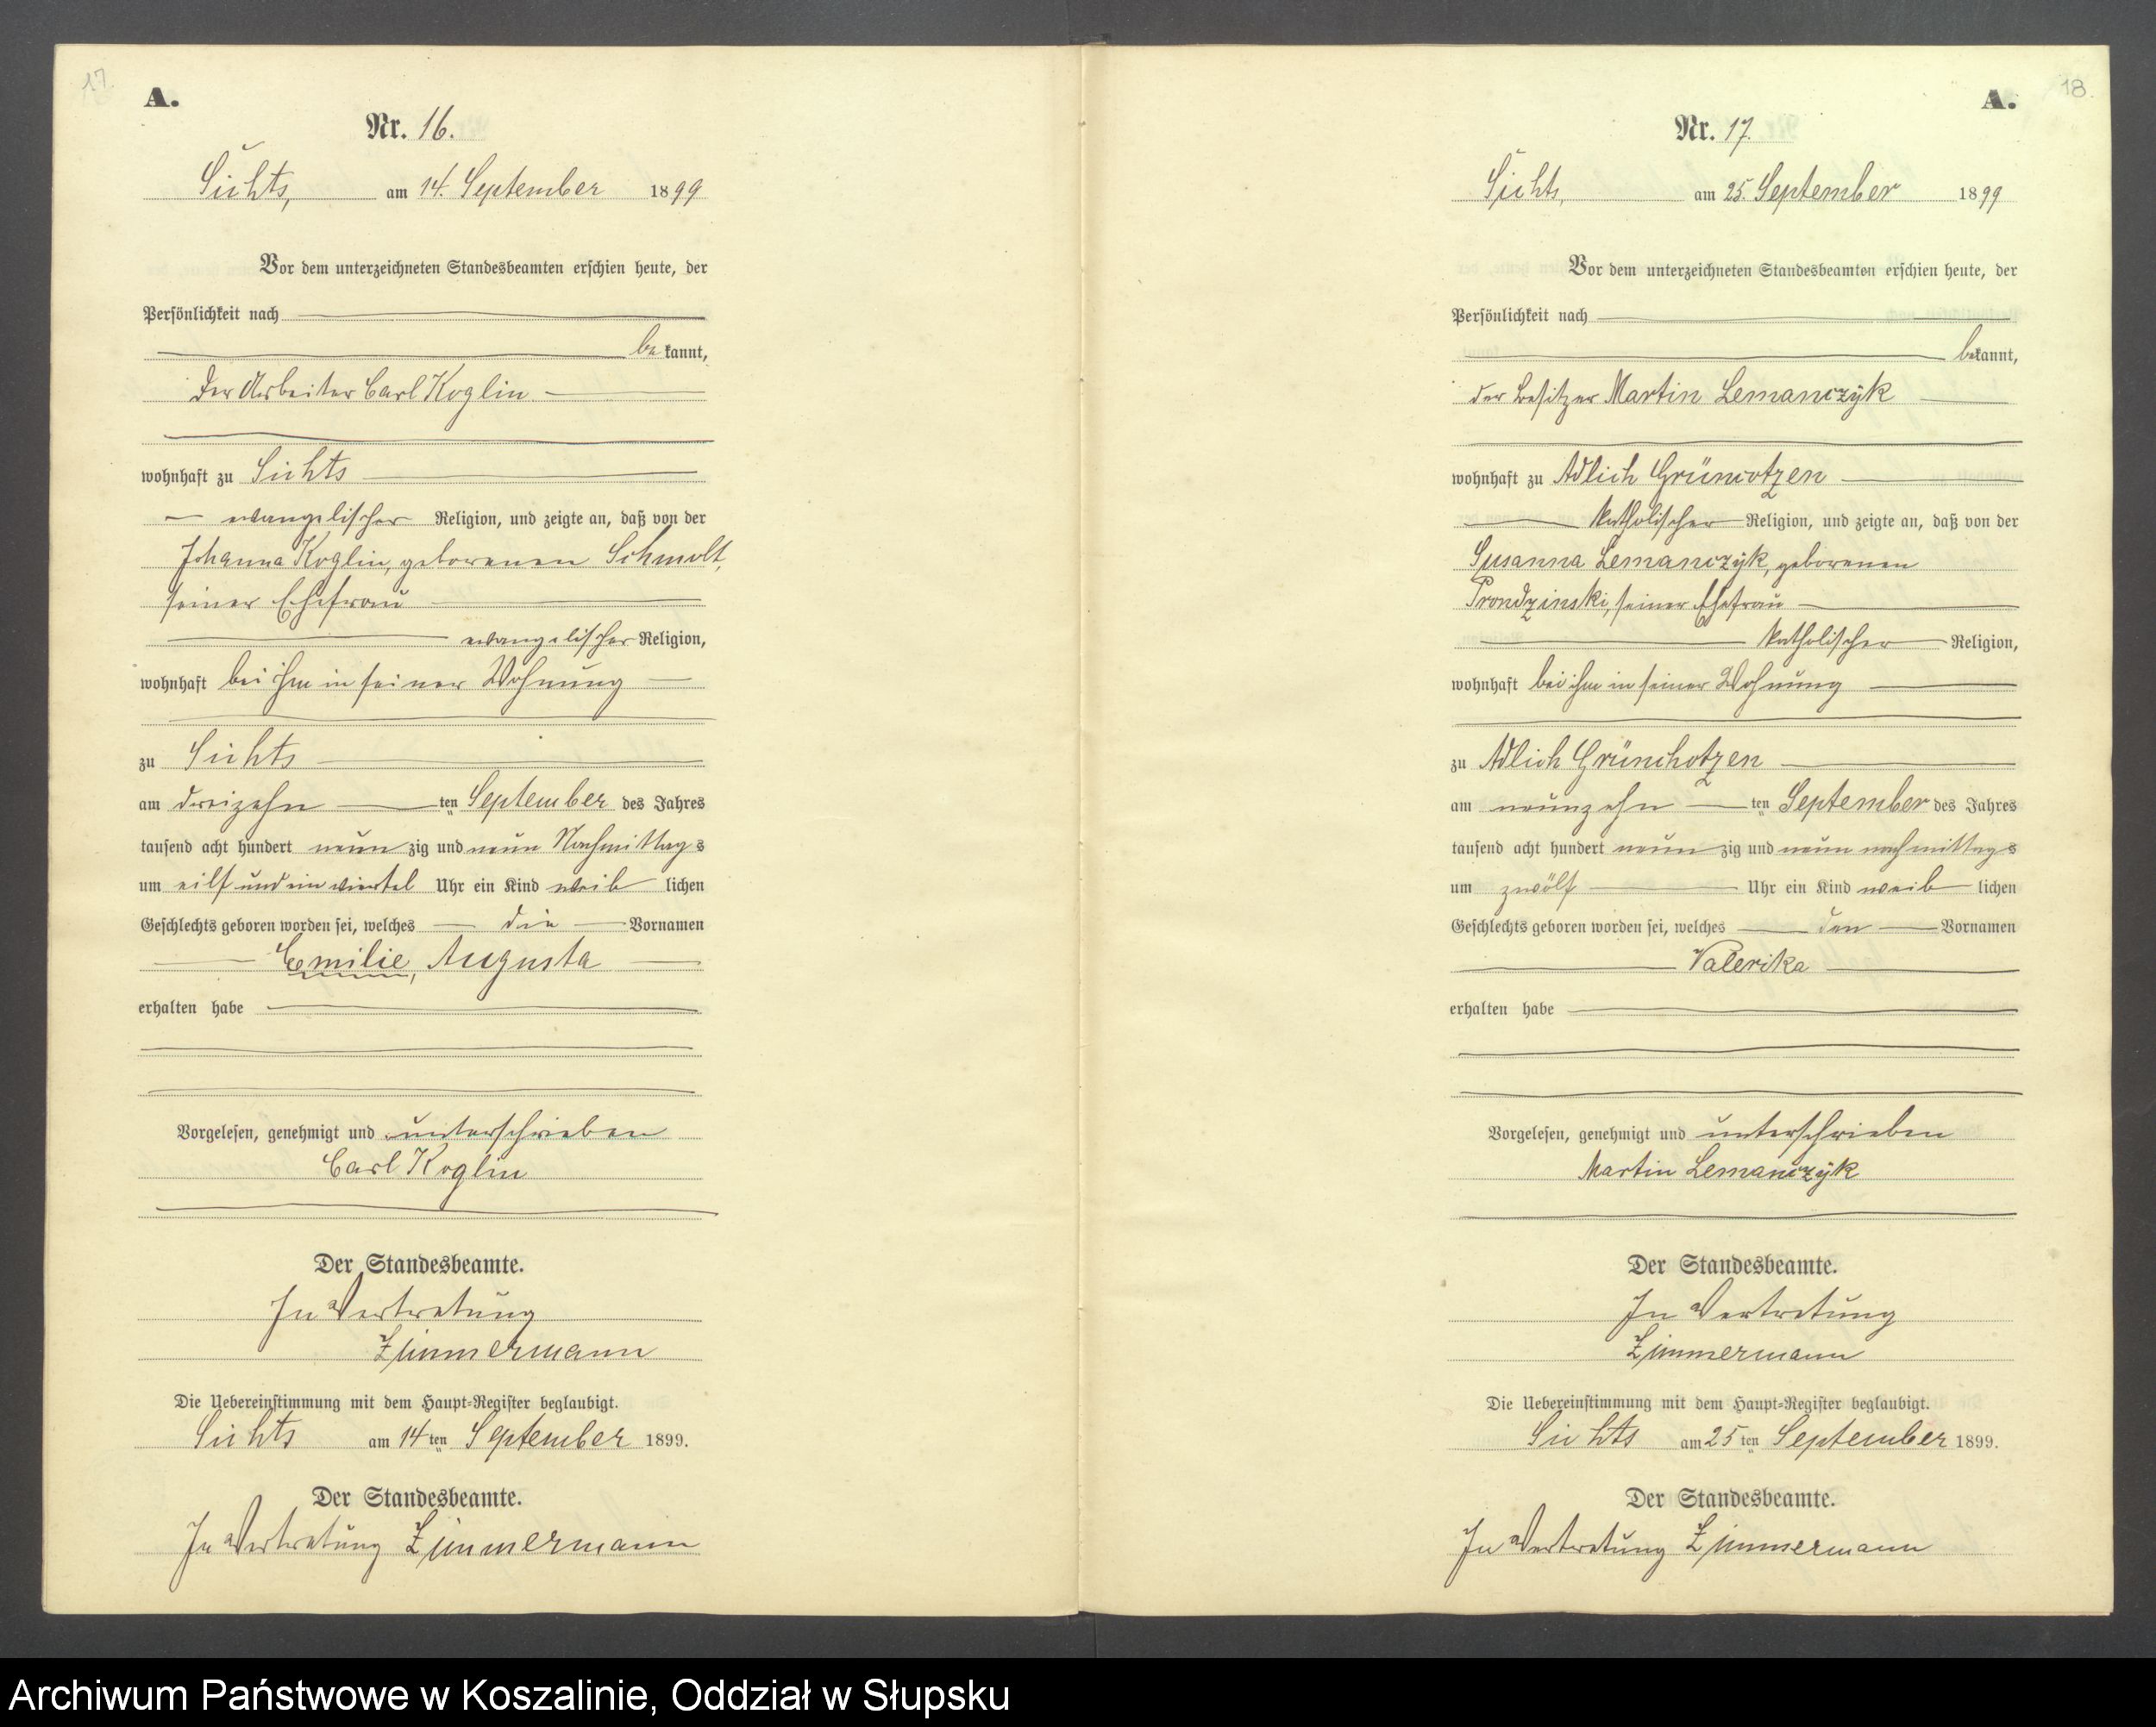 17.
A.
Nr. 16.
Sichts, am 14. September 1899
Vor dem unterzeichneten Standesbeamten erschien heute, der
Persönlichkeit nach
bekannt,
der Arbeiter Carl Koglin
wohnhaft zu Sichts
evangelischer Religion, und zeigte an, daß von der
Johanna Koglin, geborenen Schmolt,
seiner Ehefrau
evangelischer Religion,
wohnhaft bei ihm in seiner Wohnung
zu Sichts
am dreizehnten September des Jahres
tausend acht hundert neunzig und neun Nachmittags
um eilf und ein viertel Uhr ein Kind weiblichen
Geschlechts geboren worden sei, welches die Vornamen
Emilie, Augusta
erhalten habe
Vorgelesen, genehmigt und unterschrieben
Carl Koglin
Der Standesbeamte.
In Vertretung
Zimmermann
Die Uebereinstimmung mit dem Haupt-Register beglaubigt.
Sichts am 14ten September 1899.
Der Standesbeamte.
In Vertretung Zimmermann
18.
A.
Nr. 17.
Sichts, am 25. September 1899
Vor dem unterzeichneten Standesbeamten erschien heute, der
Persönlichkeit nach
bekannt,
der Besitzer Martin Lemanczyk
wohnhaft zu Adlich Grünchotzen
katholischer Religion, und zeigte an, daß von der
Susanna Lemanczyk, geborenen
Prondzinski, seiner Ehefrau
katholischer Religion,
wohnhaft bei ihm in seiner Wohnung
zu Adlich Grünchotzen
am neunzehnten September des Jahres
tausend acht hundert neunzig und neun nachmittags
um zwölf Uhr ein Kind weiblichen
Geschlechts geboren worden sei, welches den Vornamen
Valerika
erhalten habe
Vorgelesen, genehmigt und unterschrieben
Martin Lemanczyk
Der Standesbeamte.
In Vertretung
Zimmermann
Die Uebereinstimmung mit dem Haupt-Register beglaubigt.
Sichts am 25ten September 1899.
Der Standesbeamte.
In Vertretung Zimmermann
Archiwum Państwowe w Koszalinie, Oddział w Słupsku